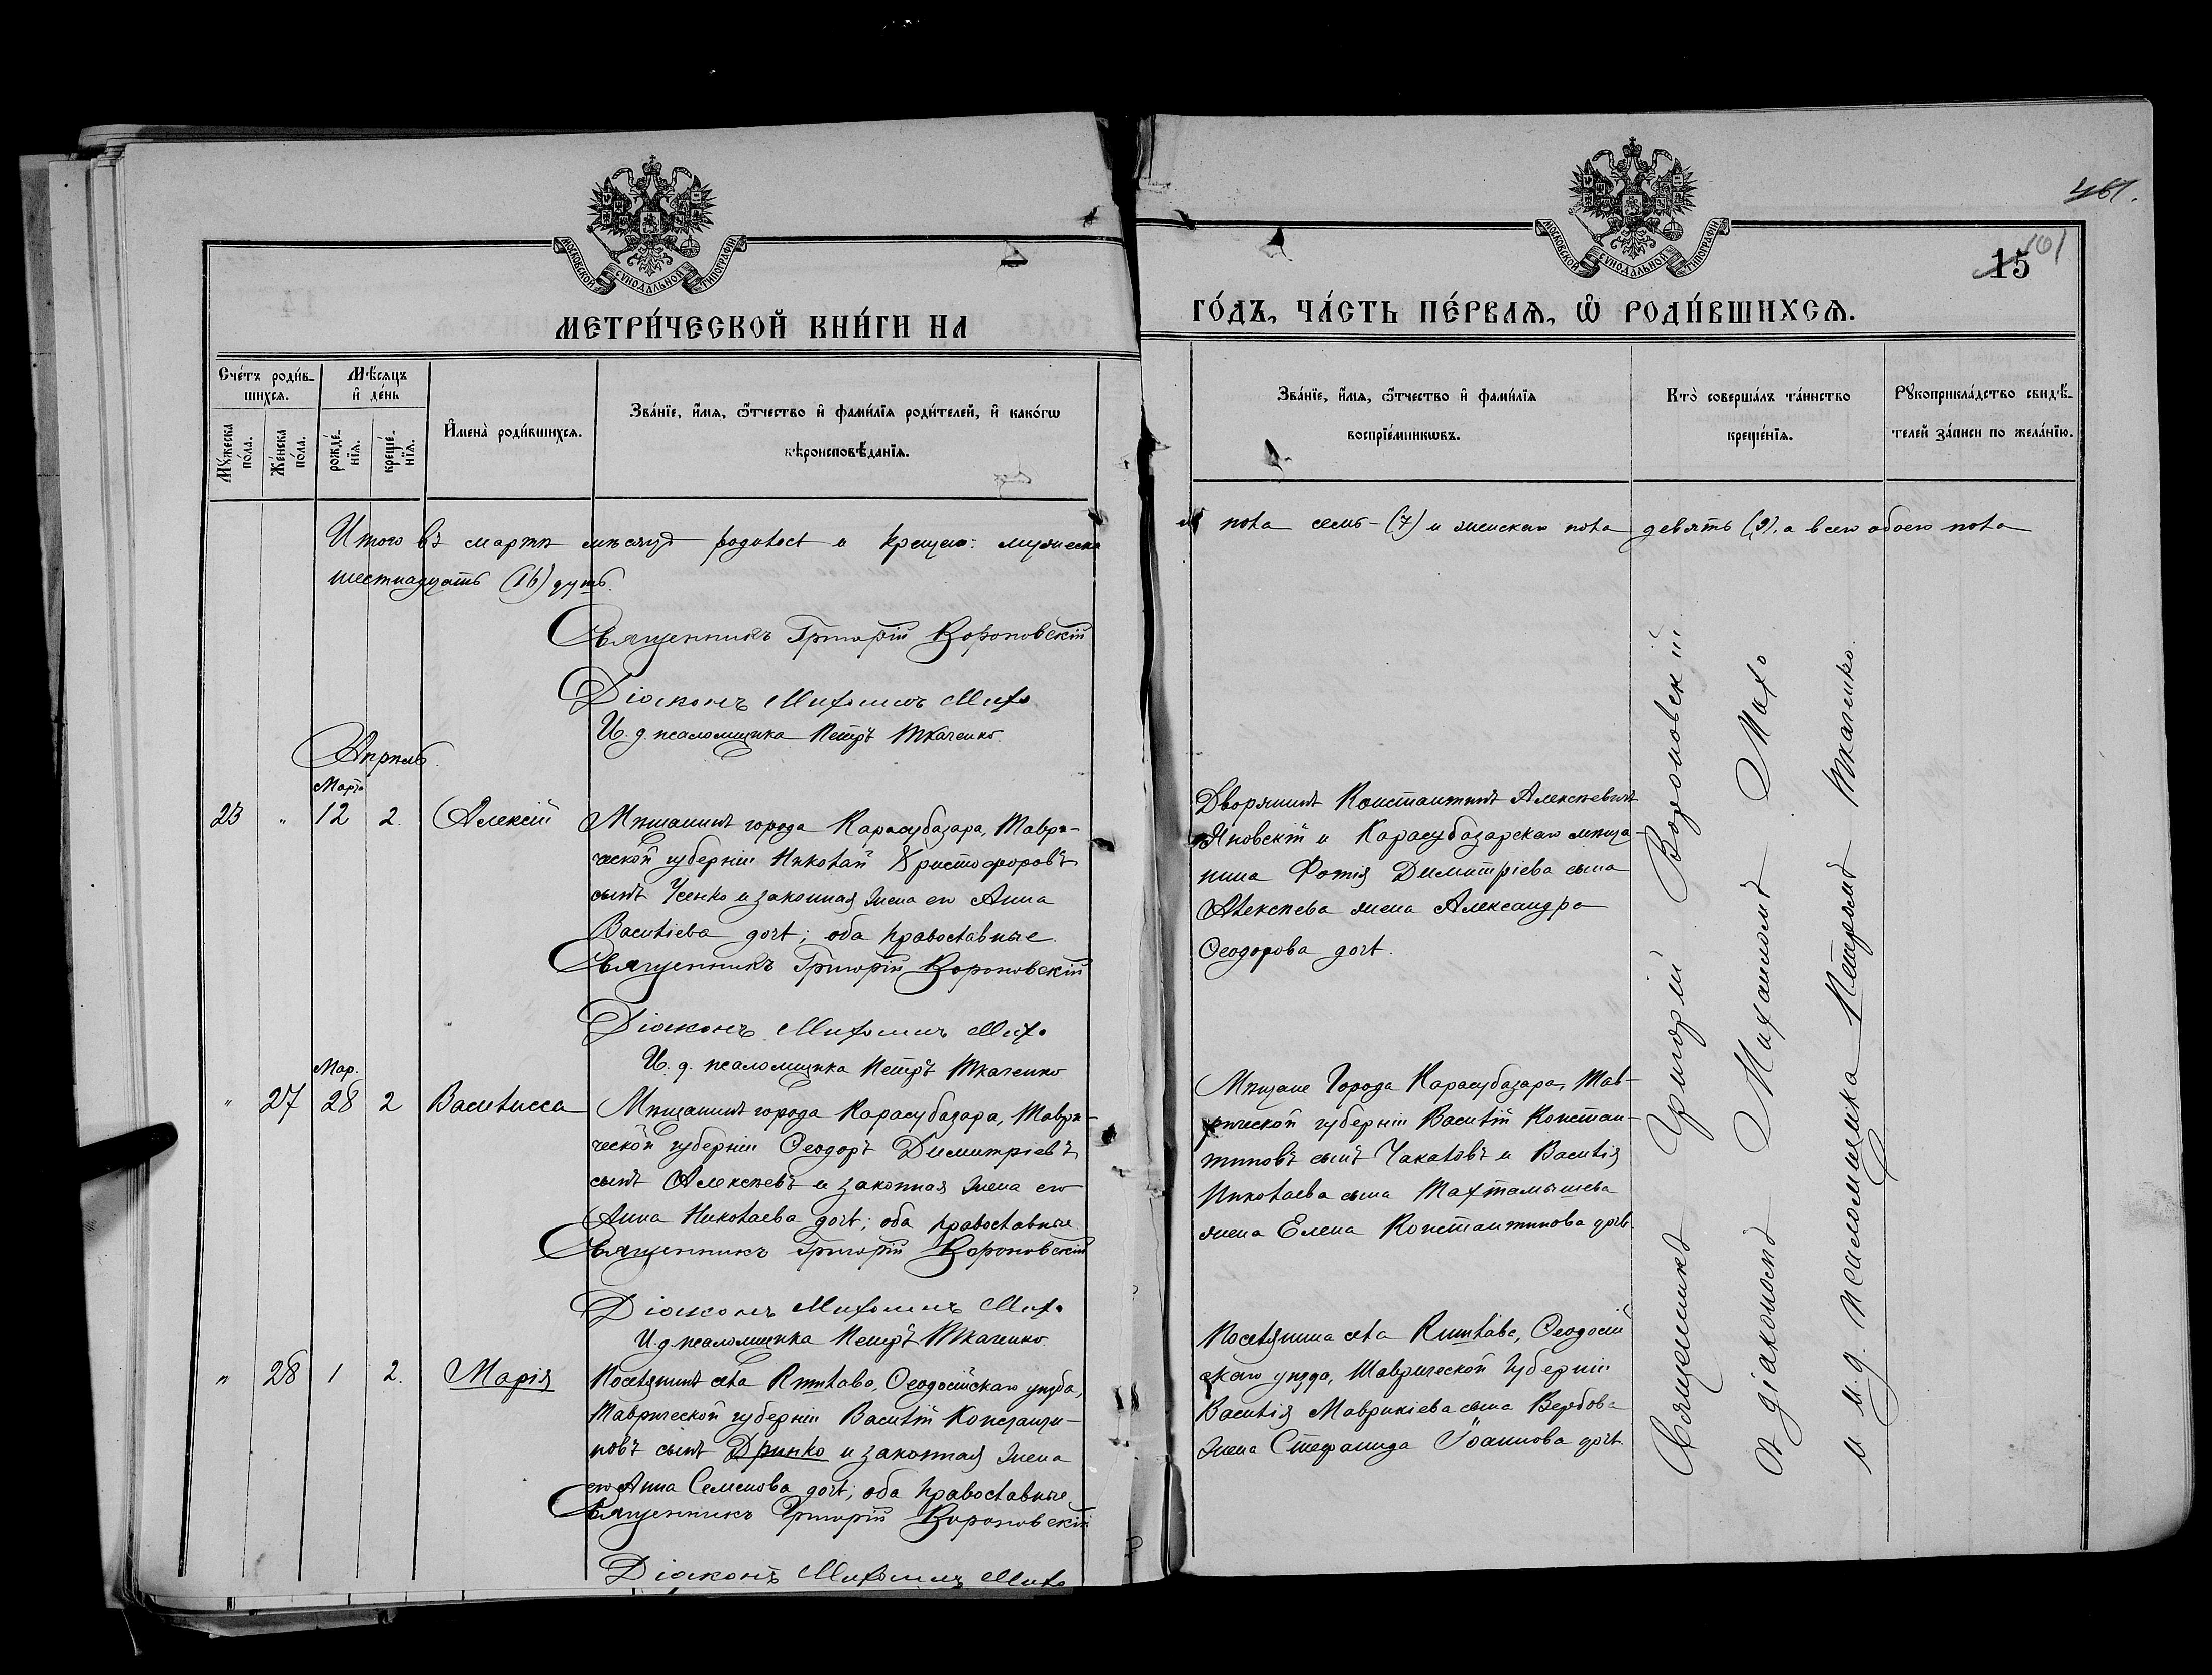 МОСКОВСКОЙ СѴНОДАЛЬНОЙ ТИПОГРАФІИ
МЕТРИ́ЧЕСКОЙ КНИ́ГИ НА
Сче́тъ роди́в-
шихсѧ.
Мѣ́сѧцъ
и҆ де́нь
Мꙋ́жеска
по́ла.
Же́нска
по́ла.
рожде́-
нїѧ.
креще́-
нїѧ.
И҆мена̀ роди́вшихсѧ.
Зва́нїе, и҆́мѧ, ѻ҆́тчество и҆ фами́лїѧ роди́телей, и҆ како́гѡ
вѣроисповѣ́данїѧ.
Итого въ мартѣ мѣсяцѣ родилось и крещено: мужеска
шестнадцать (16) душъ.
Священникъ Григорій Вороновскій
Діаконъ Михаилъ Махо
И. д. псаломщика Петръ Ткаченко.
Апрѣль.
Марта
23 " 12 2. Алексій Мѣщанинъ города Карасубазара, Таври-
ческой губерніи Николай Христофоровъ
сынъ Усенко и законная жена его Анна
Васильева дочь; оба православные.
Священникъ Григорій Вороновскій
Діаконъ Михаилъ Махо
И. д. псаломщика Петръ Ткаченко
Мар.
" 27 28 2 Василисса Мѣщанинъ города Карасубазара, Таври-
ческой губерніи Ѳеодоръ Димитріевъ
сынъ Алексѣевъ и законная жена его
Анна Николаева дочь; оба православные.
Священникъ Григорій Вороновскій
Діаконъ Михаилъ Махо
И. д. псаломщика Петръ Ткаченко.
" 28 1 2. Марія Поселянинъ села Ѳеодосійскаго уѣзда,
Таврической губерніи Василій
новъ сынъ Дринко и законная жена
его Анна Семенова дочь; оба православные
Священникъ Григорій Вороновскій
Діаконъ Михаилъ Махо
МОСКОВСКОЙ СѴНОДАЛЬНОЙ ТИПОГРАФІИ
461.
15 161
ГО́ДЪ, ЧА́СТЬ ПЕ́РВАѦ, Ѡ҆ РОДИ́ВШИХСѦ.
Зва́нїе, и҆́мѧ, ѻ҆́тчество и҆ фами́лїѧ
воспрїе́мникѡвъ.
Кто̀ соверша́лъ та́инство
креще́нїѧ.
Рꙋкоприкла́дство свидѣ́-
телей за́писи по жела́нїю.
пола семь - (7) и женскаго пола девять (9), а всего обоего пола
Дворянинъ Константинъ Алексѣевичъ
Яновскій и Карасубазарскаго мѣща-
нина Фотія Димитріева сына
Алексѣева жена Александра
Ѳеодорова дочь.
Мѣщане Города Карасубазара, Тав-
рической губерніи Василій Констан-
тиновъ сынъ Чакаловъ и Василія
Николаева сына Тахтамышева
жена Елена Константинова дочь.
Поселянина села Ѳеодосій
скаго уѣзда, Таврической губерніи
Василія Маврикіева сына Вербова
жена Стефанида Іоаннова дочь.
Священникъ Григорій Вороновскій
съ діакономъ Михаиломъ Махо
и и. д. псаломщика Петромъ Ткаченко.